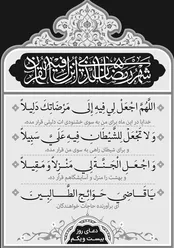 شهر رمضان الذی انزل فیه القرآن
اللهم اجعل لی فیه الی مرضاتک دلیلاً
خدایا در این ماه برای من به سوی خشنودی ات دلیلی قرار مده،
ولا تجعل للشیطان فیه علی سبیلاً
و برای شیطان راهی به سوی من قرار مده،
واجعل الجنة لی منزلاً ومقیلاً
و بهشت را منزل و آسایشگاهم قرار ده،
یا قاضی حوائج الطالبین
ای برآورنده حاجات خواهندگان
دعای روز
بیست و یکم